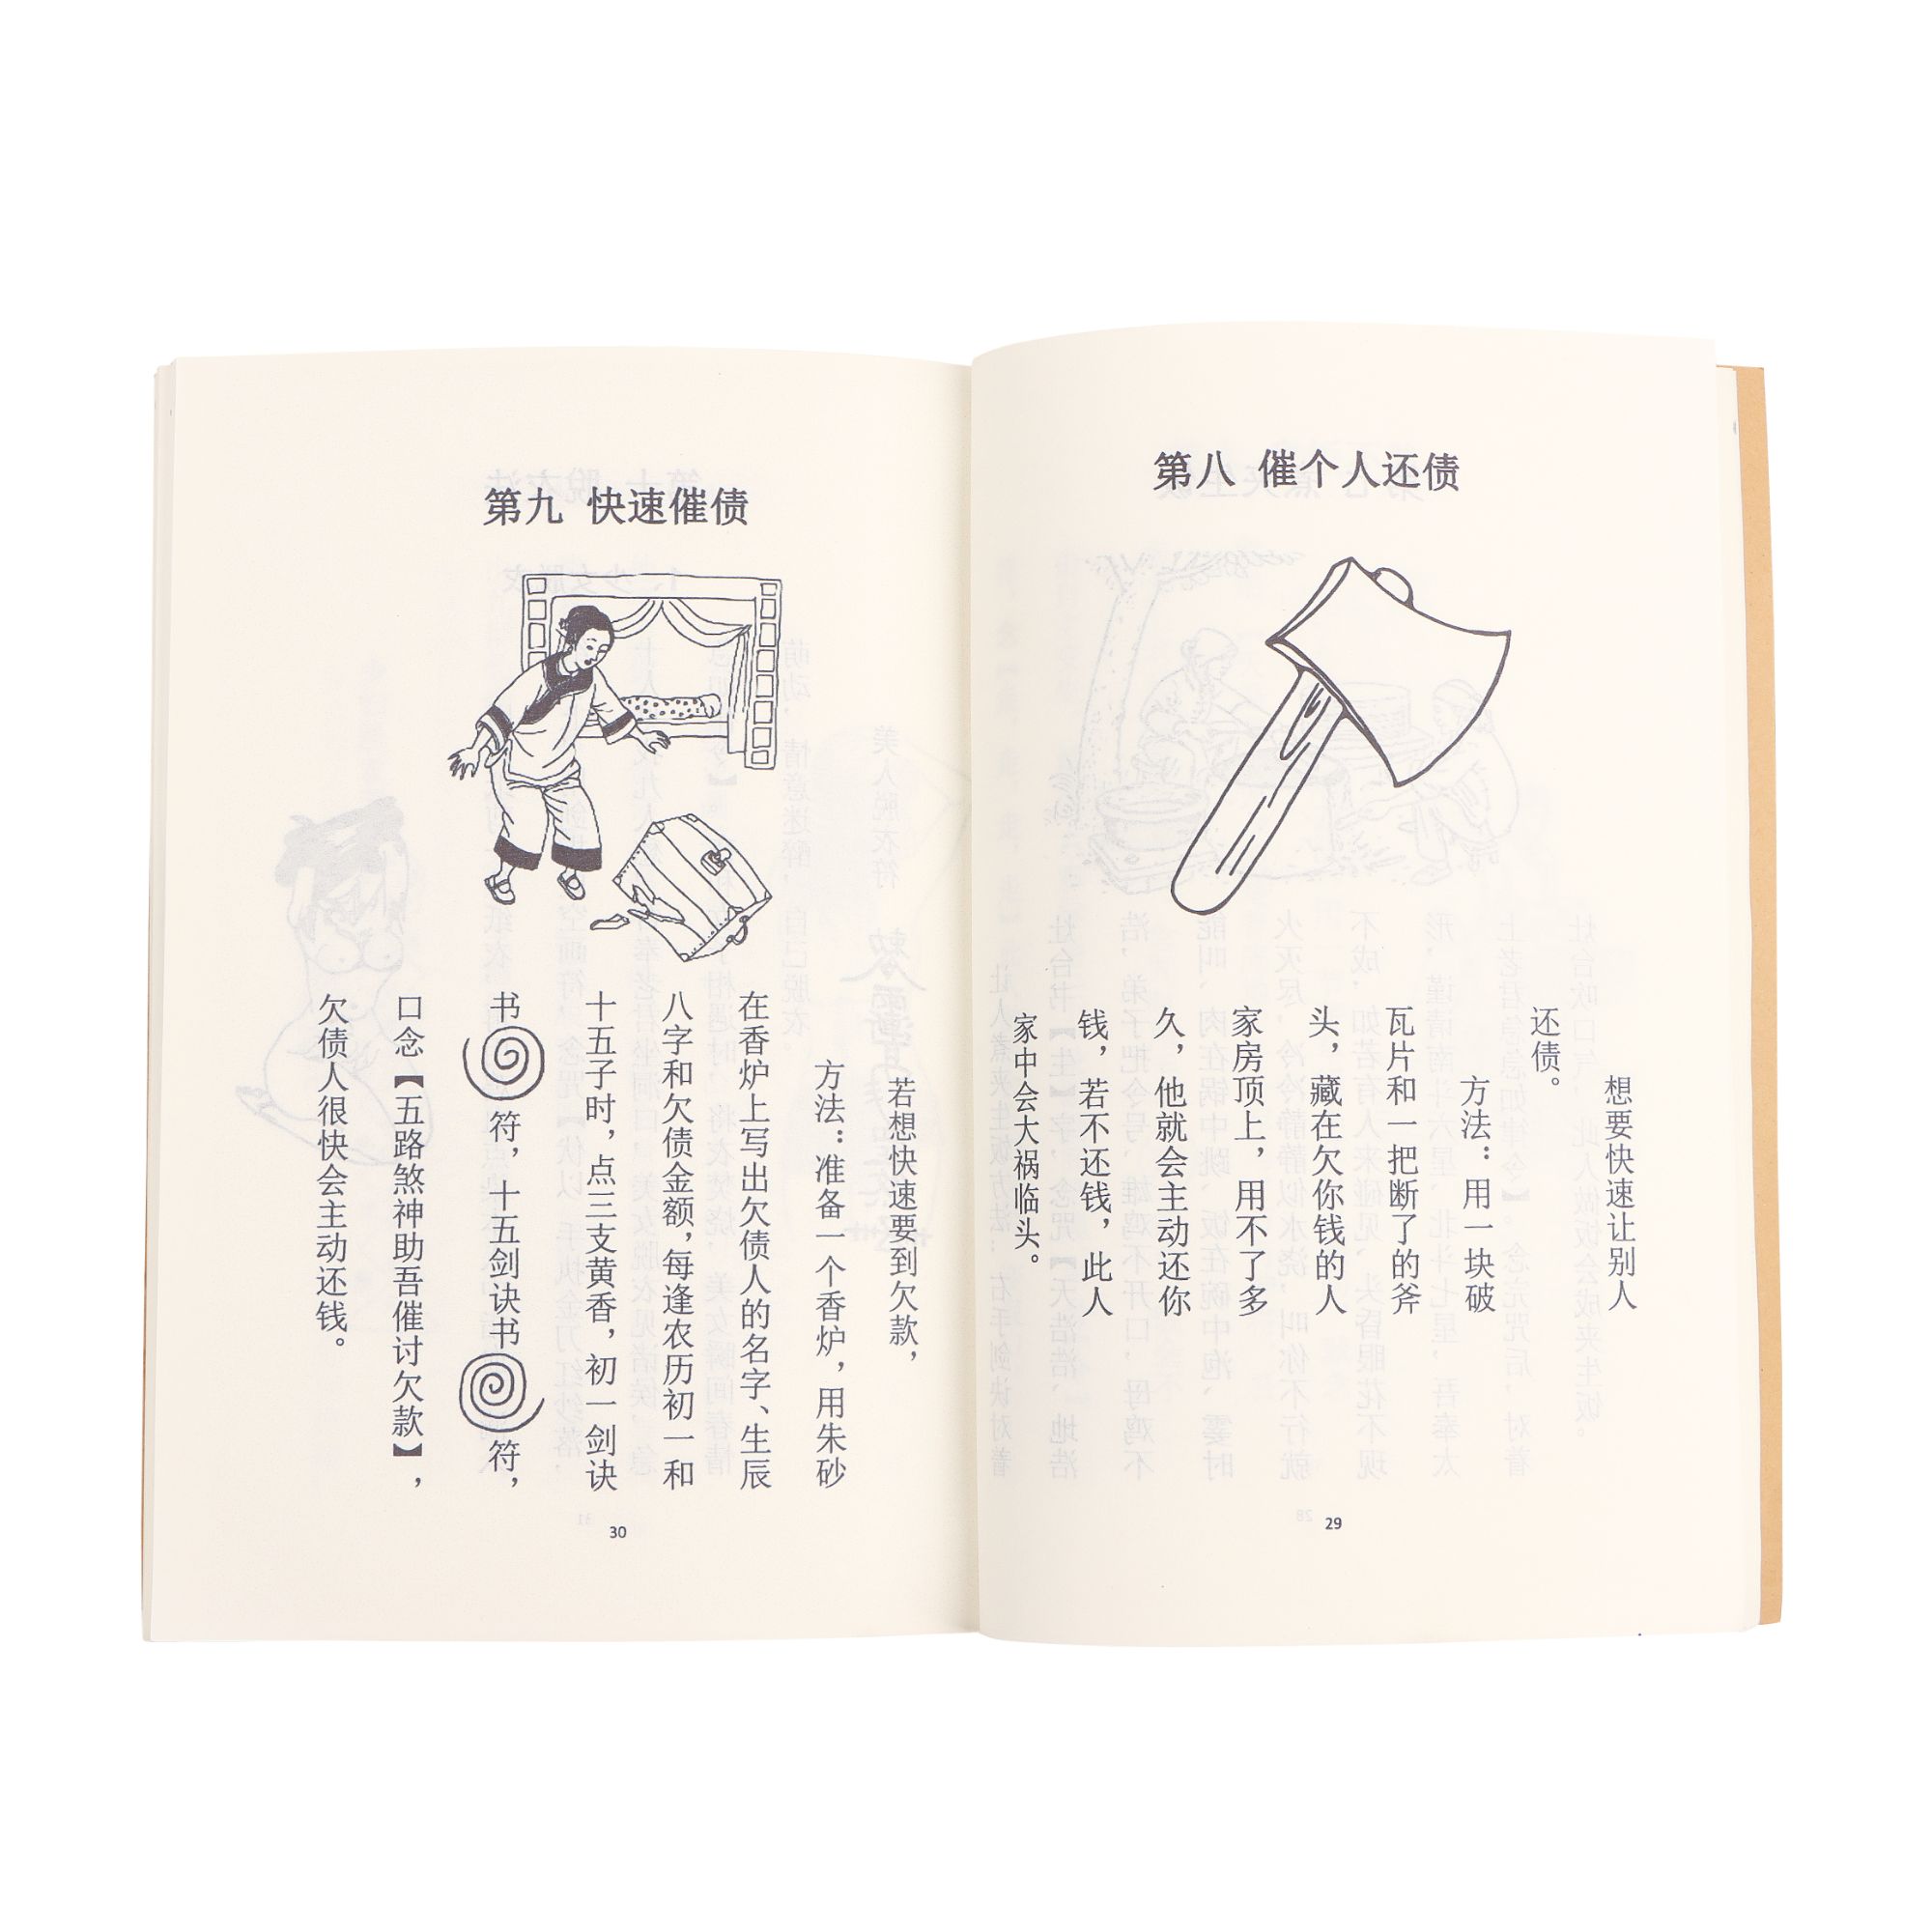 第八 催个人还债
想要快速让别人
还债。
方法：用一块破
瓦片和一把断了的斧
头，藏在欠你钱的人
家房顶上，用不了多
久，他就会主动还你
钱，若不还钱，此人
家中会大祸临头。
29
第九 快速催债
若想快速要到欠款，
方法：准备一个香炉，用朱砂
在香炉上写出欠债人的名字、生辰
八字和欠债金额，每逢农历初一和
十五子时，点三支黄香，初一剑诀
书符，十五剑诀书符，
口念【五路煞神助吾催讨欠款】，
欠债人很快会主动还钱。
30